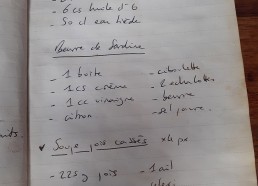 - 6 cs huile d'
- 50 cl eau froide
Beurre de Sardine
- 1 boite
- 1 cs crème
- 1 cc vinaigre
- citron
- ciboulette
- 2 echalottes
- beurre
- sel poivre
✓ Soupe pois cassés x4 po
- 225 g pois
- 1 ail